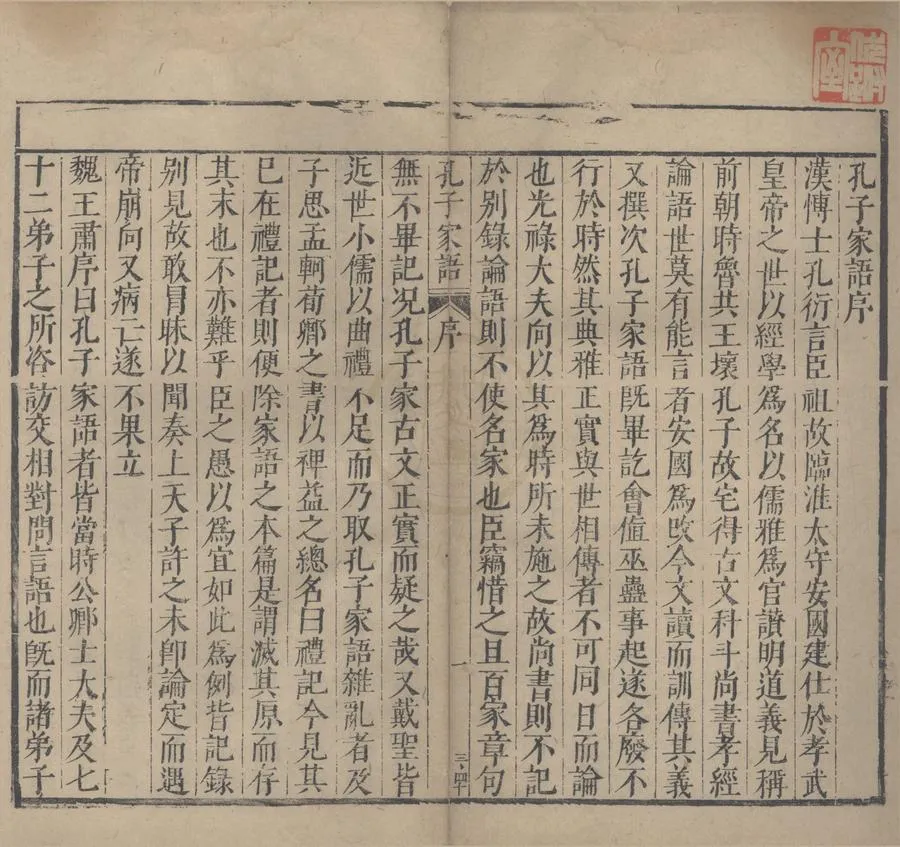 孔子家語序
漢博士孔衍言臣祖故臨淮太守安國建仕於孝武
皇帝之世以經學爲名以儒雅爲官讚明道義見稱
前朝時魯共王壞孔子故宅得古文科斗尚書孝經
論語世莫有能言者安國爲攺今文讀而訓傳其義
又撰次孔子家語旣畢訖會值巫蠱事起遂各廢不
行於時然其典雅正實與世相傳者不可同日而論
也光祿大夫向以其爲時所未施之故尚書則不記
於別錄論語則不使名家也臣竊惜之且百家章句
孔子家語 序 一
無不畢記況孔子家古文正實而疑之哉又戴聖皆
近世小儒以曲禮不足而乃取孔子家語雜亂者及
子思孟軻荀卿之書以裨益之總名曰禮記今見其
已在禮記者則便除家語之本篇是謂滅其原而存
其末也不亦難乎臣之愚以爲宜如此爲例皆記錄
別見故敢冒昧以聞奏上天子許之未卽論定而遇
帝崩向又病亡遂不果立
魏王肅序曰孔子家語者皆當時公卿士大夫及七
十二弟子之所咨訪交相對問言語也旣而諸弟子